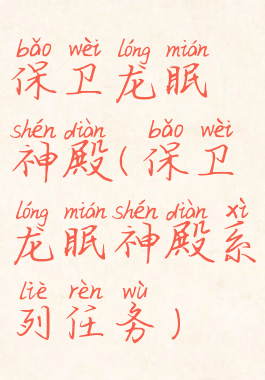 bǎo wèi lóng mián
保卫龙眠
shén diàn bǎo wèi
神殿(保卫
lóng mián shén diàn xì
龙眠神殿系
liè rèn wù
列任务)